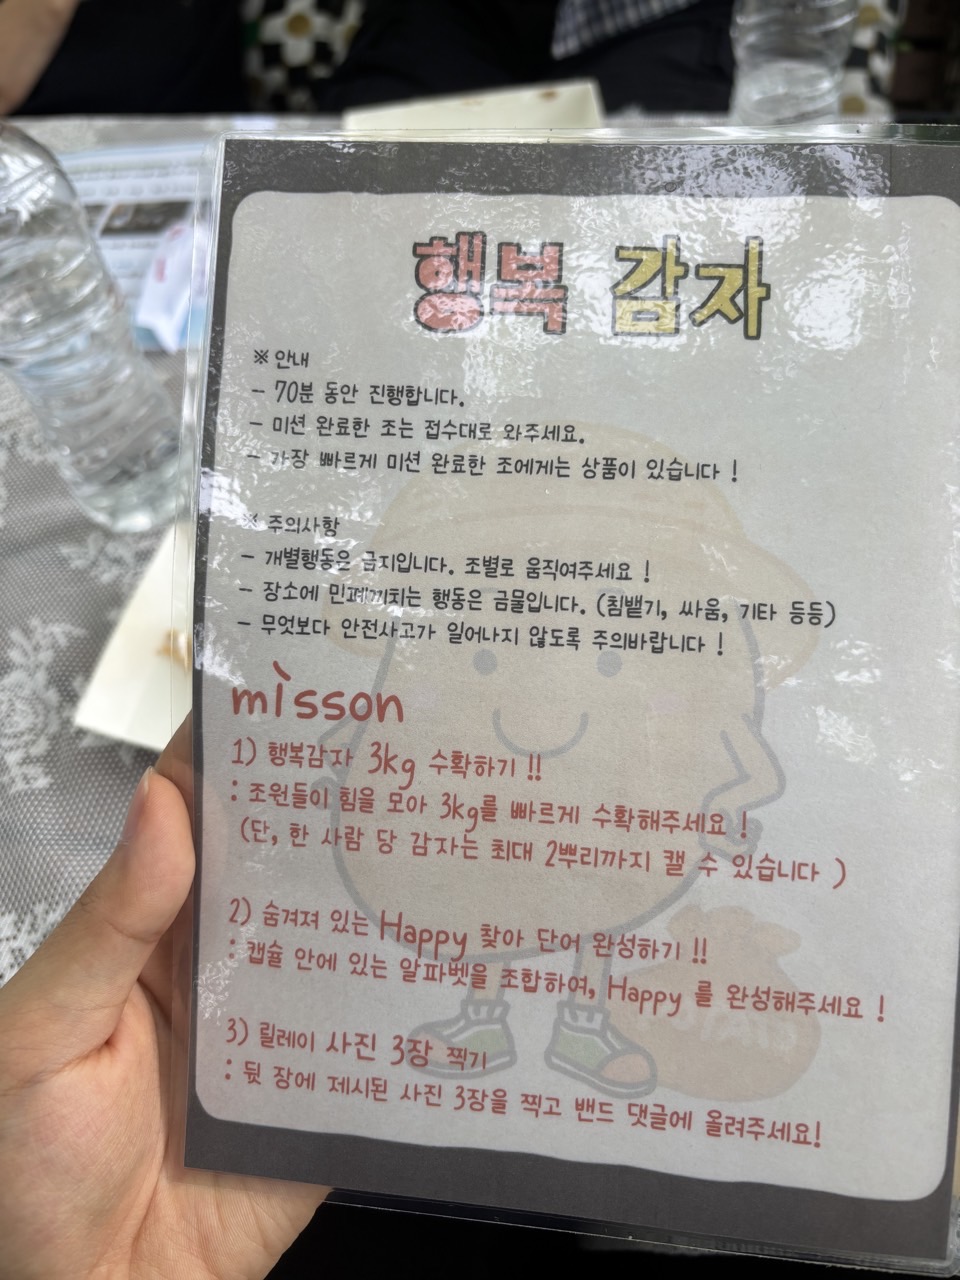 행복 감자
※ 안내
- 70분 동안 진행합니다.
- 미션 완료한 조는 접수대로 와주세요.
- 가장 빠르게 미션 완료한 조에게는 상품이 있습니다 !
※ 주의사항
- 개별행동은 금지입니다. 조별로 움직여주세요 !
- 장소에 민폐끼치는 행동은 금물입니다. (침뱉기, 싸움, 기타 등등)
- 무엇보다 안전사고가 일어나지 않도록 주의바랍니다 !
mìsson
1) 행복감자 3kg 수확하기 !!
: 조원들이 힘을 모아 3kg를 빠르게 수확해주세요 !
(단, 한 사람 당 감자는 최대 2뿌리까지 캘 수 있습니다 )
2) 숨겨져 있는 Happy 찾아 단어 완성하기 !!
: 캡슐 안에 있는 알파벳을 조합하여, Happy 를 완성해주세요 !
3) 릴레이 사진 3장 찍기
: 뒷 장에 제시된 사진 3장을 찍고 밴드 댓글에 올려주세요!